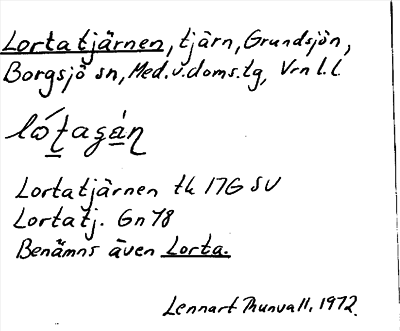 Lortatjärnen, tjärn, Grundsjön,
Borgsjö sn, Med.v.doms.tg, Vrn l.l.
Lortatjärnen tk 17G SV
Lortatj. Gn 78
Benämns även Lorta.
Lennart Thunvall, 1972.